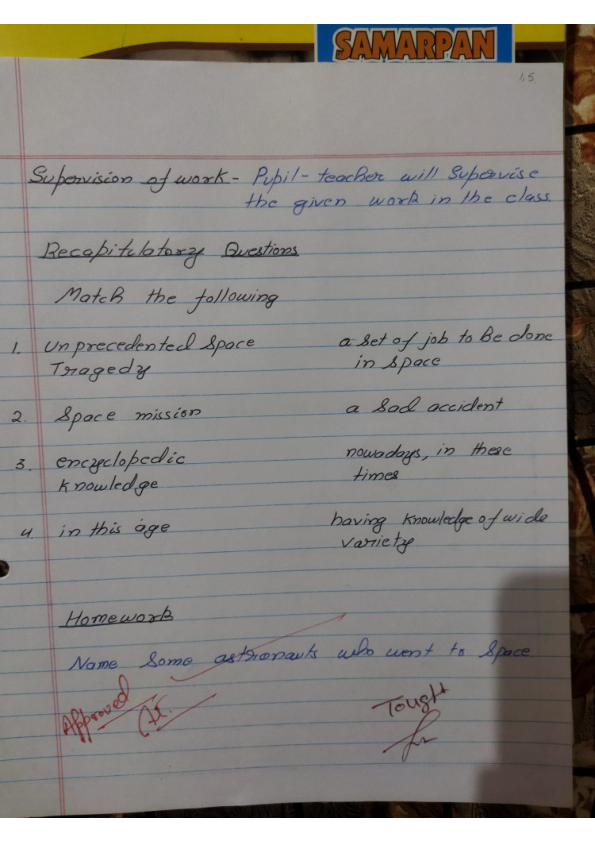 SAMARPAN
15
Supervision of work - Pupil-teacher will Supervise
the given work in the class.
Recapitulatory Questions
Match the following
1. Unprecedented Space a set of job to be done
Tragedy in space
2. Space mission a sad accident
3. encyclopedic nowadays, in these
knowledge times
4. in this age having knowledge of wide
variety
Homework
Name Some astronauts who went to Space
Approved
Tought